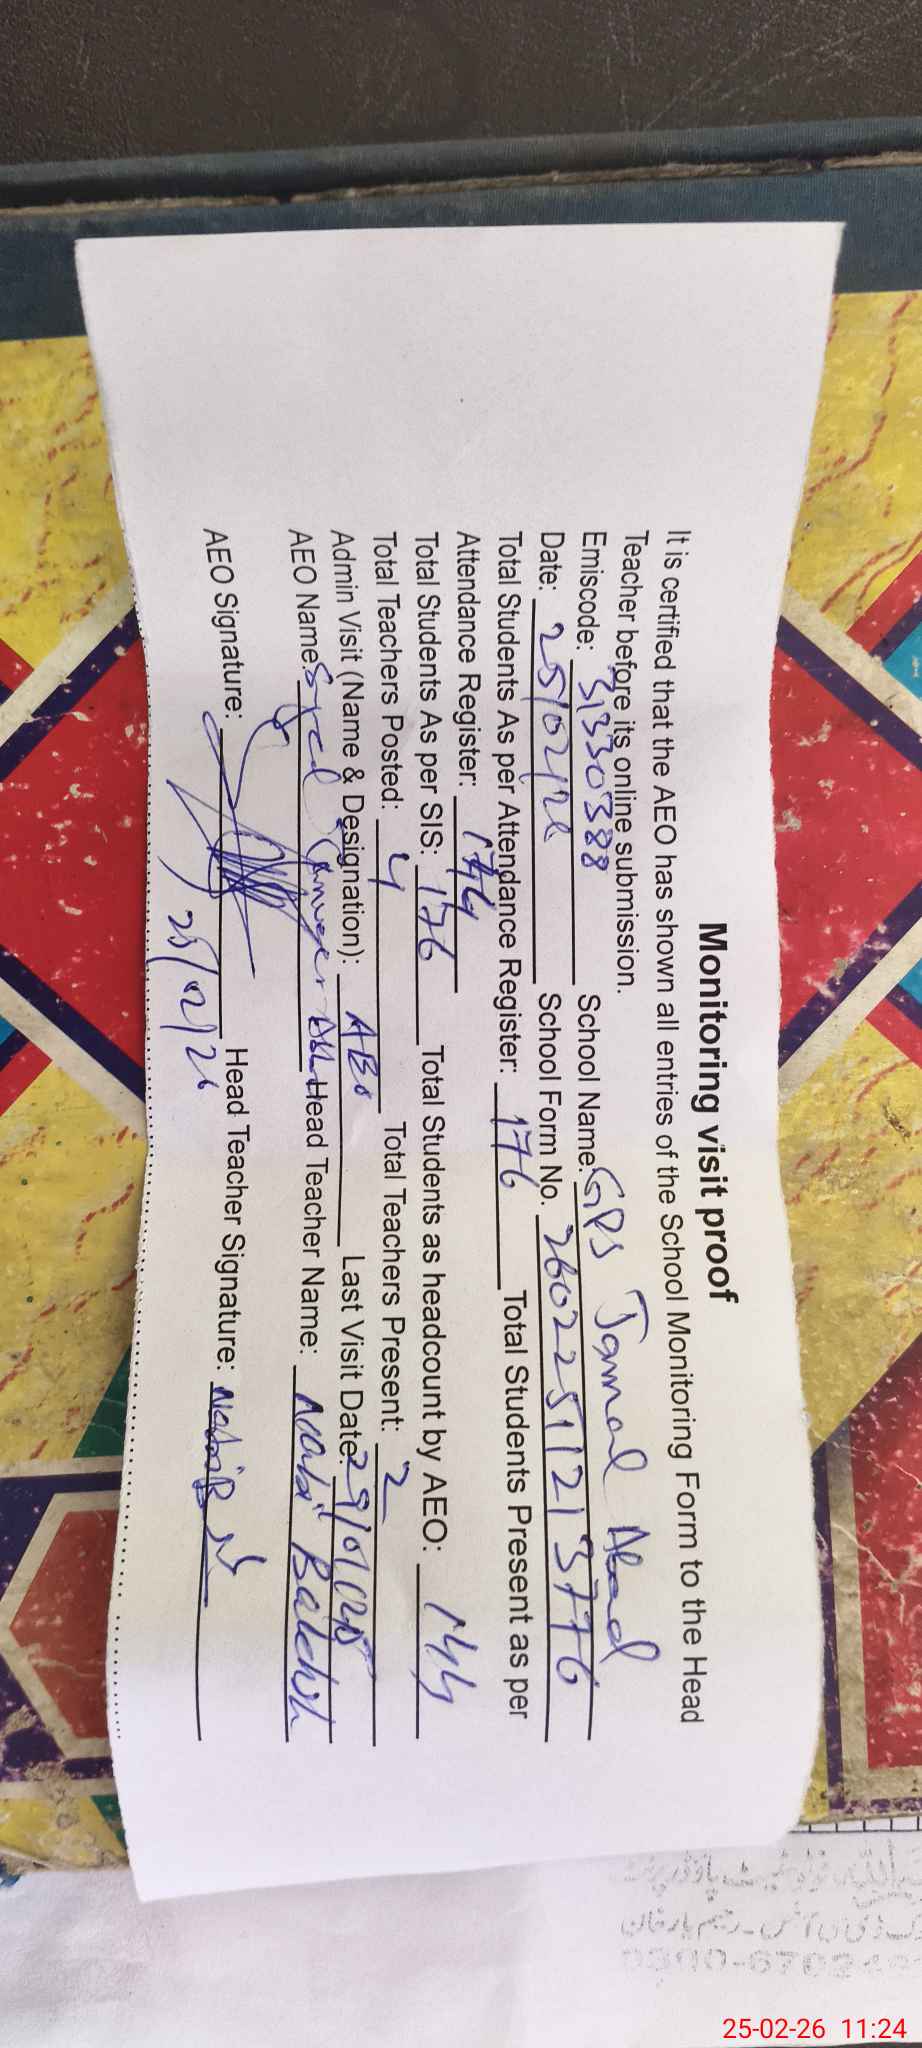 Monitoring visit proof
It is certified that the AEO has shown all entries of the School Monitoring Form to the Head
Teacher before its online submission.
Emiscode: 31330388 School Name: GPS Jamal Abad
Date: 25/02/26 School Form No. 2602251213776
Total Students As per Attendance Register: 176 Total Students Present as per
Attendance Register: 144
Total Students As per SIS: 176 Total Students as headcount by AEO: 144
Total Teachers Posted: 4 Total Teachers Present: 2
Admin Visit (Name & Designation): AEO Last Visit Date: 29/01/26
AEO Name: Syed Head Teacher Name: Nabi Bakhsh
AEO Signature: Head Teacher Signature: Nabi B
25/02/26
25-02-26 11:24